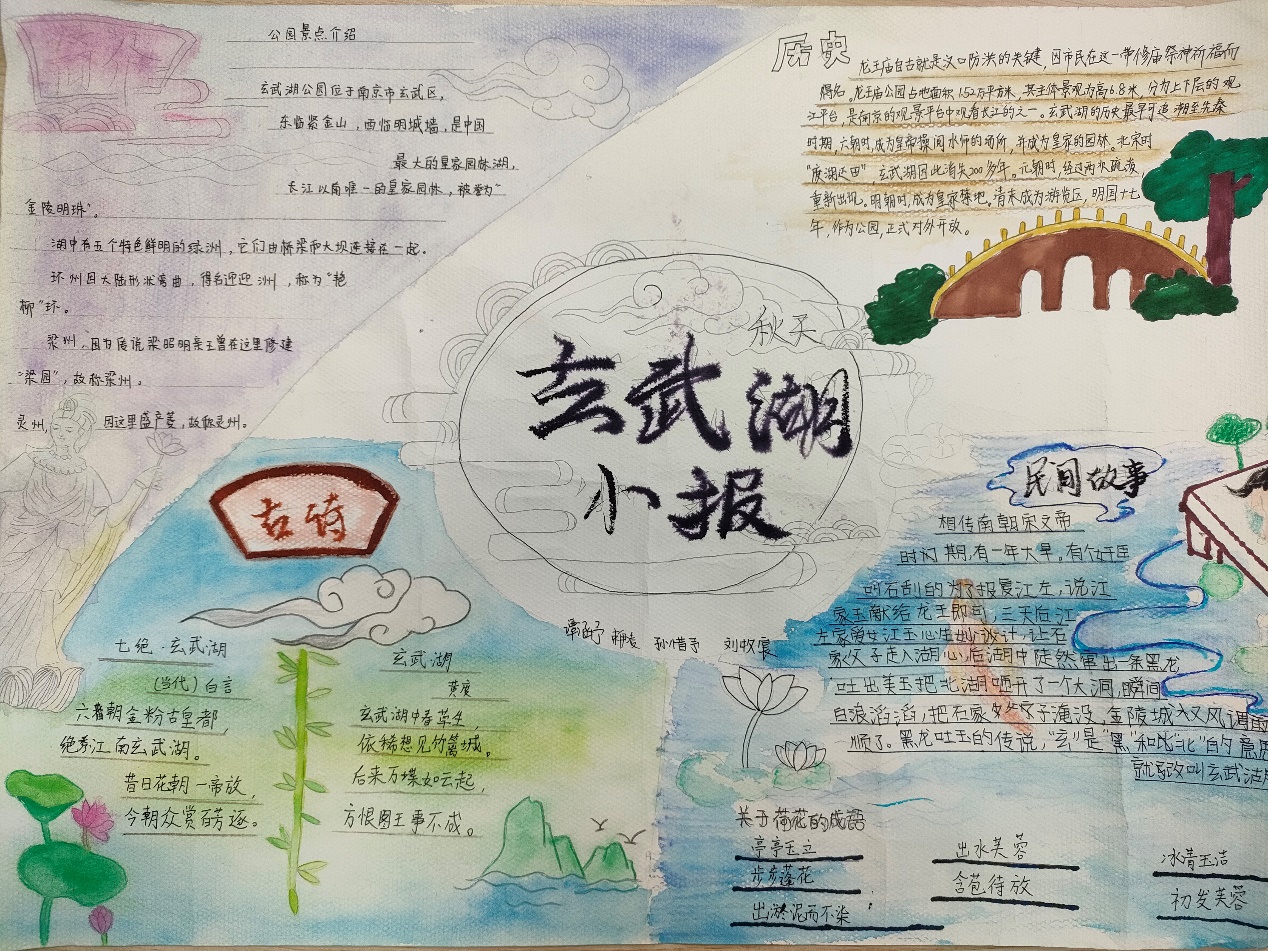 公园景点介绍
玄武湖公园位于南京市玄武区，
东临紫金山，西临明城墙，是中国
最大的皇家园林湖，
长江以南唯一的皇家园林，被誉为“
金陵明珠”。
湖中有五个特色鲜明的绿洲，它们由桥梁而大坝连接在一起。
环州因大陆形状弯曲，得名迎迎洲，称为“艳
柳”环。
梁州，因为传说梁昭明亲王曾在这里修建
“梁园”，故称梁州。
灵州，因这里盛产菱，故称灵州。
历史
龙王庙自古就是汉口防洪的关键，因市民在这一带修庙祭神祈福而
得名。龙王庙公园占地面积1.52万平方米，其主体景观为高6.8米，分为上下层的观
江平台是南京的观景平台中观看长江的之一。玄武湖的历史最早可追溯至先秦
时期，六朝时，成为皇帝操阅水师的场所，并成为皇家的园林。北宋时
“废湖还田”，玄武湖因此消失200多年。元朝时，经过两次疏浚，
重新出现。明朝时，成为皇家禁地。清末成为游览区，明国十七
年，作为公园，正式对外开放。
秋天
玄武湖
小报
孙惜予 刘牧宸
古诗
七绝·玄武湖
（当代）白言
六朝金粉古皇都，
绝秀江南玄武湖。
昔日花朝一帝放，
今朝众赏百芳逐。
玄武湖
黄度
玄武湖中春草生，
依稀想见竹篱城。
后来万堞如云起，
方恨图王事不成。
民间故事
相传南朝宋文帝
时间期，有一年大旱。有个奸臣
叫石刮的为了报复江左，说江
家玉献给龙王即可，三天后江
左家的女江玉心生妙诚计，让石
家父子走入湖心后湖中陡然窜出一条黑龙
吐出美玉把北湖砸开了一个大洞，瞬间
白浪滔滔，把石家父子淹没，金陵城又风调雨
顺了。黑龙吐玉的传说，“玄”是“黑”和“北”的意思
就改叫玄武湖
关于荷花的成语
亭亭玉立
步步莲花
出淤泥而不染
出水芙蓉
含苞待放
冰清玉洁
初发芙蓉